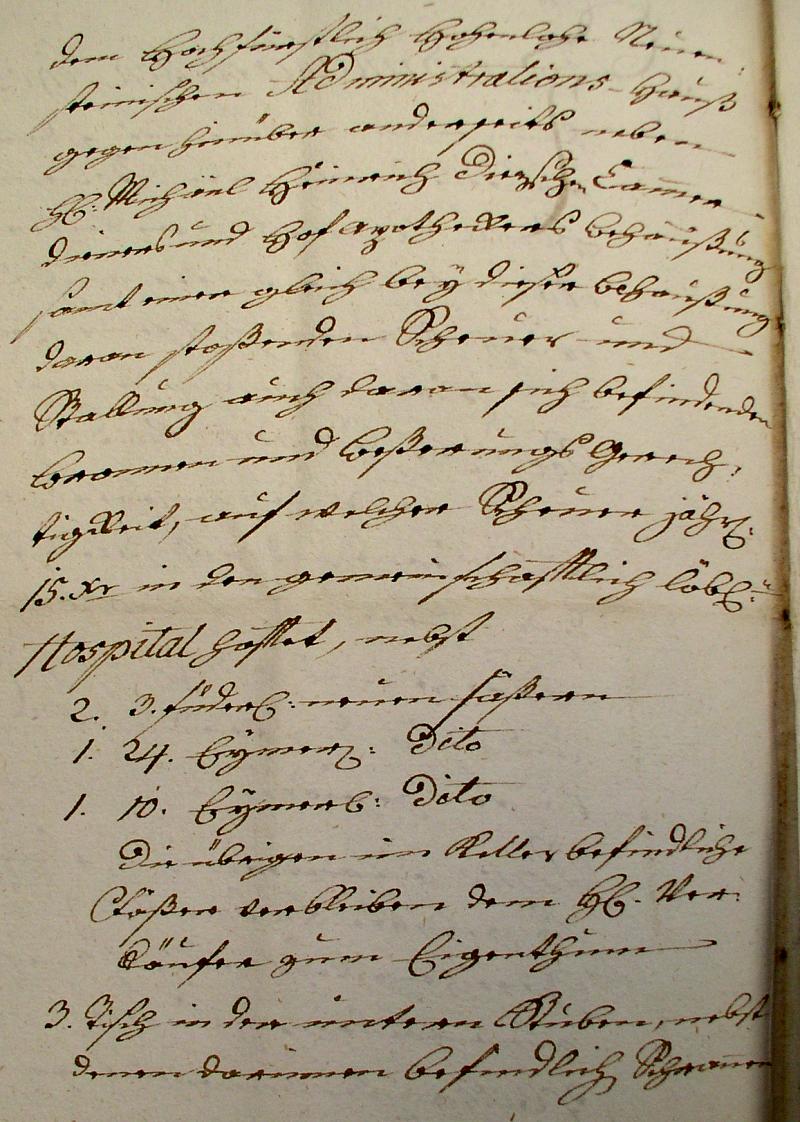 dem Hochfürstlich Hohenlohe Neuen:
steinischen Administrations-Hauß
gegen hinüber anderseits neben
H: Michael Heinrich Dietzschen Cammer-
dieners und Hof apotheckers behaußung
samt einer gleich bey dieser behaußung
daran stoßenden Scheuer und
Stallung auch daran sich befindenden
bronnen und beßerungs Gerech,
tigkeit, auf welcher Scheuer jährl:
15. Xr in den gemeinschafftlich löbl:
Hospital hafftet, nebst
2. 3. füderl: neuen Faßern
1. 24. Eymer: Dito
1. 10. Eymer: Dito
die übrigen im Keller befindliche
Faßer verbleiben dem H. Ver:
käufer zum Eigenthum
3. Tisch in der untern Stuben, nebst
denen darinnen befindlich Schrannen